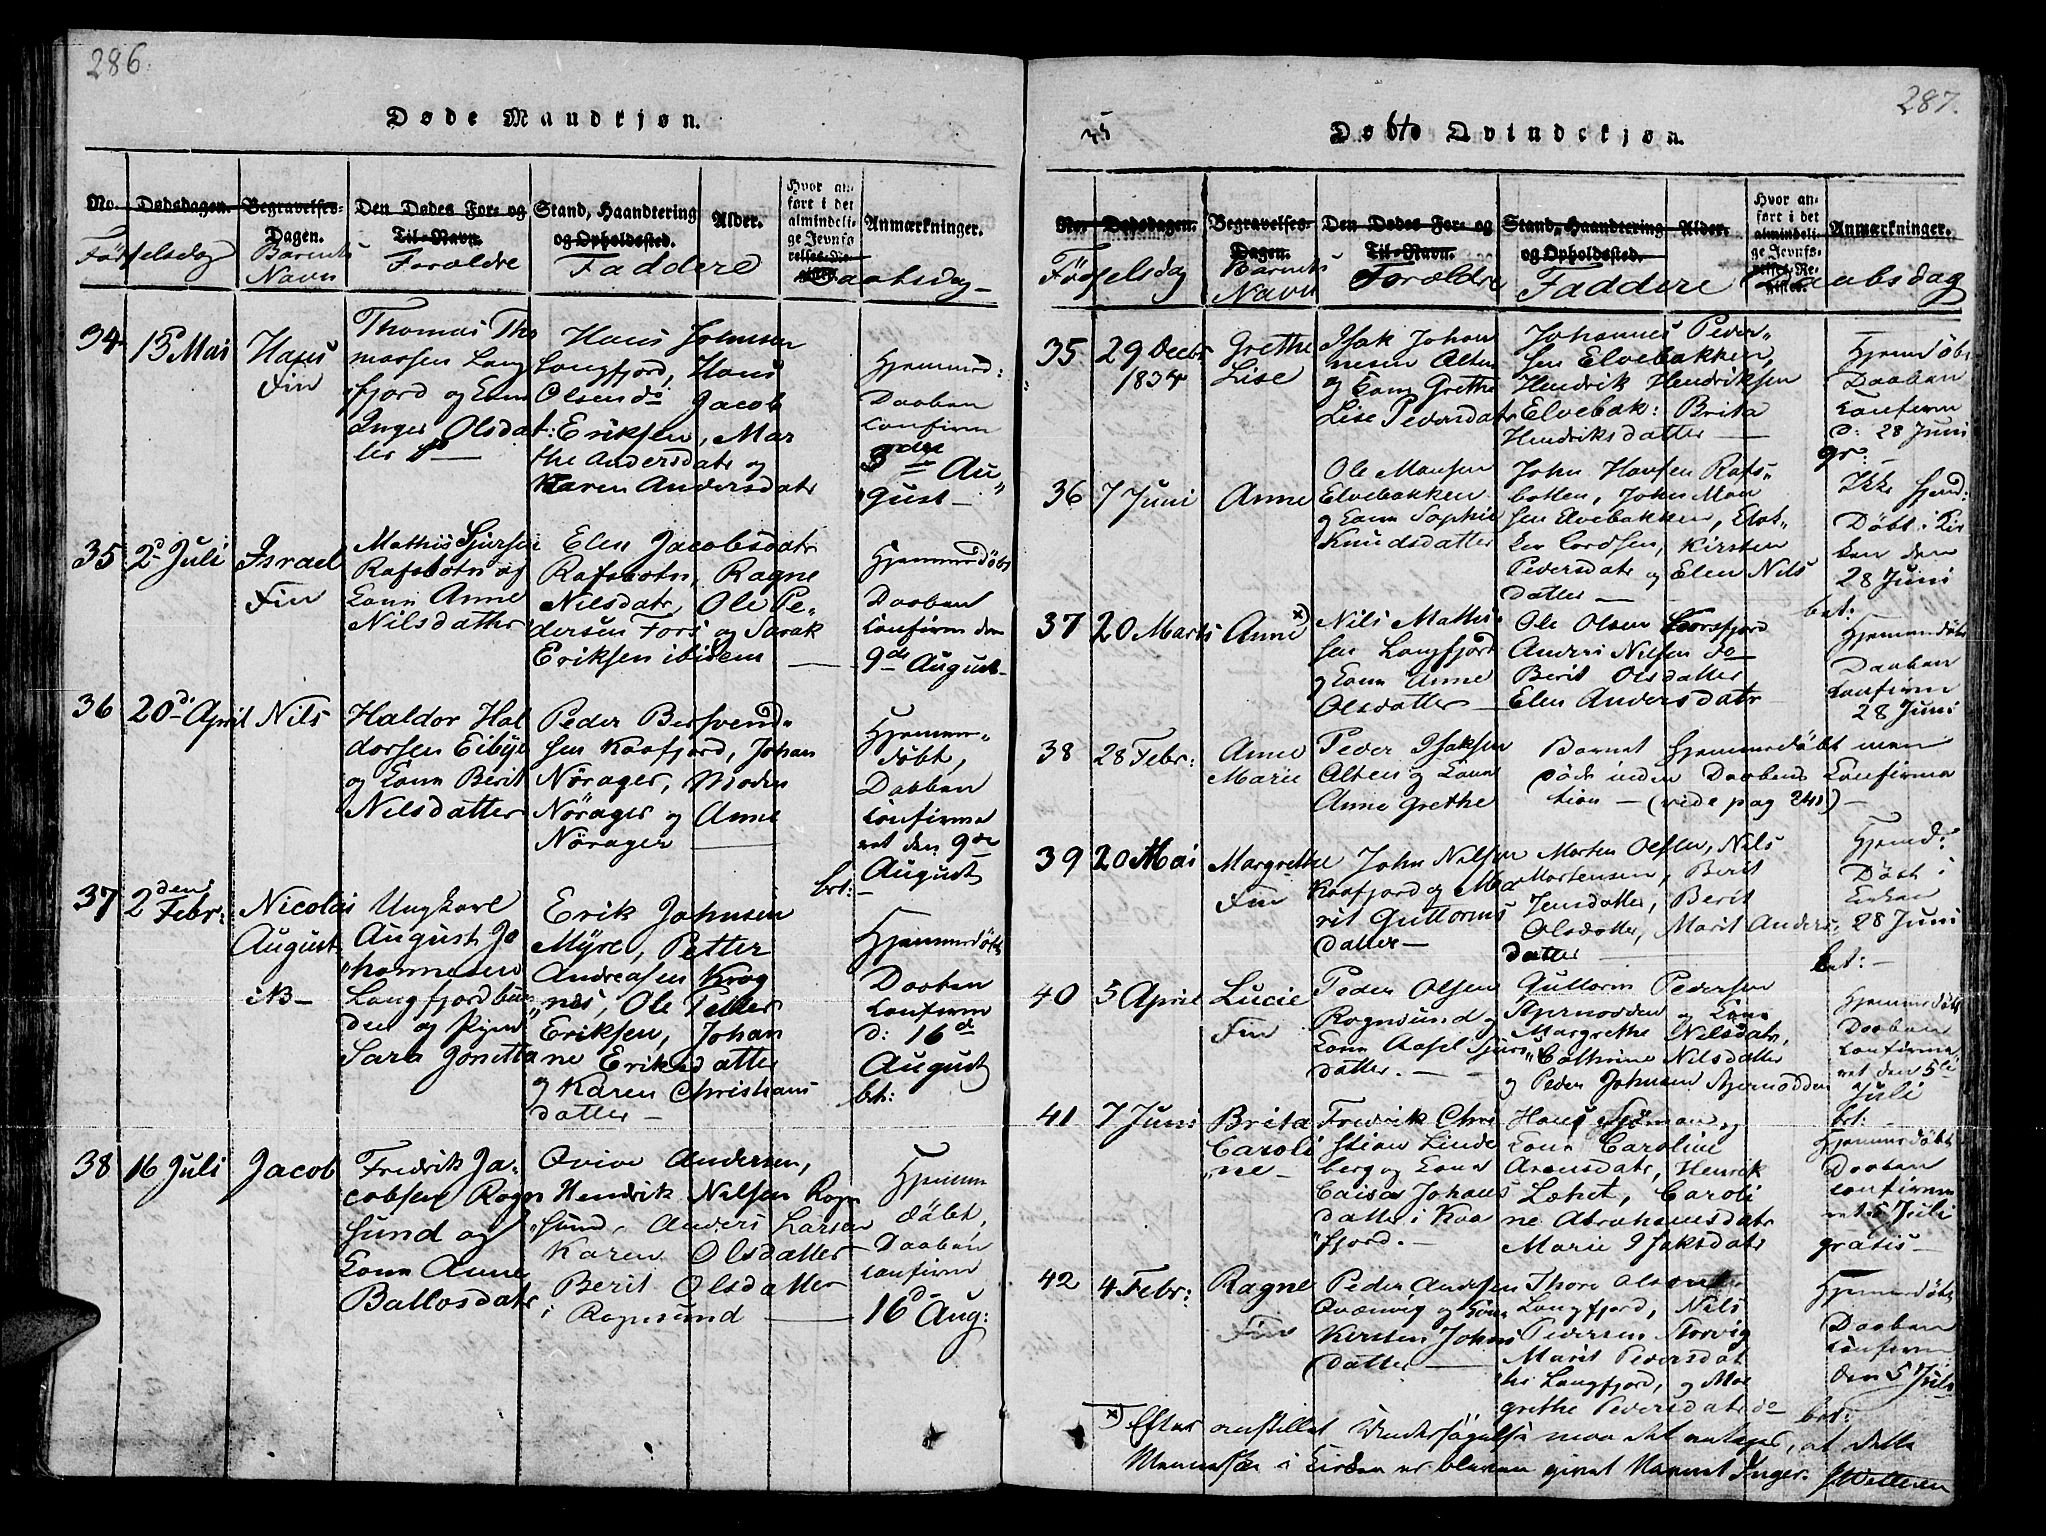 286.
Døde Mandkjøn.
No. Dødsdagen. Begravelses-Dagen. Den Dødes For- og Til-Navn. Stand, Haandtering og Opholdssted. Alder. Hvor anført i det almindelige Jevnførelses-Register. Anmærkninger.
Fødselsdag Barnets Navn Forældre Faddere Daabsdag
34 13 Mai Hans Fin
Thomas Tho
massen Lang
fjord og Kone
Inger Olsdat
ter
Hans Johnsen
Langfjord, Hans
Olsen do Jacob
Eriksen, Mar
the Andersdatr og
Karen Andersdatr
Hjemmed:
Daaben
confirm
3die Au„
gust
35 2 Juli Israel Fin
Mathis Sjursen
Rafsbotn og
Kone Anne
Nilsdatter
Elen Jacobsdatr
Rafsbotn, Ragne
Nilsdatr, Ole Pe„
dersen Fors og Sarak
Eriksen ibidem
Hjemmedøbt
Daaben
confirm den
9de August
36 20de April Nils
Haldor Hal
dorsen Eibye
og Kone Berit
Nilsdatter
Peder Bersvend„
sen Kaafjord, Johan
Nørager,
Nørager og Anne
Nørager
Hjemme„
døbt,
Daaben
confirme
ret den 9de
August
bet:
37 2den Febr: Nicolai
August
NB
Ungkarl
August Jo
hannesen
Langfjordbun
den og Pigen
Sara Jonetta
Erik Johnsen
Myre, Petter
Andreasen Krog
næs, Ole Petter
Eriksen, Johan
ne Eriksdatter
og Karen Christians
datter
Hjemmedøbt
Daaben
confirm
d: 16d
August
bet:
38 16 Juli Jacob
Fredrik Ja„
cobsen Rogn
sund og
Kone Anne
Ballosdatr
Qvive Andersen,
Hendrik Nilsen Rogn
sund, Anders Larsen
Karen Olsdatter
Berit Olsdatter
i Rognsund
Hjemme
døbt,
Daaben
confirm
16d Aug:
287.
Døbte Qvindekjøn.
No. Dødsdagen. Begravelses-Dagen. Den Dødes For- og Til-Navn. Stand, Haandtering og Opholdssted. Alder. Hvor anført i det almindelige Jevnførelses-Register. Anmærkninger.
Fødselsdag Barnets Navn Forældre Faddere Daabsdag
35 29 Decbr 1834 Grethe Lise
Isak Johan
nesen Alten
og Kone Grethe
Lise Pedersdatr
Johannes Peder„
sen Elvebakken,
Hendrik Hendriksen
Elvebak: Brita
Hendriksdatter
Hjemdøbt
Daaben
confirm
d: 28 Juni
gr:
36 7 Juni Anne
Ole Monsen
Elvebakken
og Kone Sophie
Knudsdatter
John Hansen Rafs„
botten, John Mon
sen Elvebakken,
Kirsten
Pedersdatr og Elen Nils
datter
Ikke hjemd:
Døbt i Kir
ken den
28 Juni
bet:
37 20 Marts Anne x)
Nils Mathi
sen Langfjord
og Kone Anne
Olsdatter
Ole Olsen Korsfjord
Anders Nilsen do
Berit Olsdatter
Elen Andersdatr
Hjemmedøbt
Daaben
confirm
28 Juni
38 28 Febr: Anne Marie
Peder Isaksen
Alten og Kone
Anne Grethe
Barnet hjemmedøbt men
døde inden Daabens Confirma
tion (vide pag 241)
39 20 Mai Margrethe Fin
John Nilsen
Kaafjord og Ma
rit Guttorms
datter
Morten Olsen, Nils
Mortensen, Berit
Jensdatter, Berit
Olsdatter, Marit Anders
datter
Hjemd:
Døbt i
Kirken
28 Juni
bet:
40 5 April Lucie Fin
Peder Olsen
Rognsund og
Kone Aasel Sjurs
datter.
Guttorm Pedersen
Stjernodden og Kone
Margrethe Nilsdatr,
Cathrine Nilsdatter
og Peder Johnsen Stjernodden
Hjemmedøbt
Daaben
confirme„
ret den 5te
Juli
bet:
41 7 Juni Brita
Caroli
ne
Fredrik Chri
stian Linde
berg og Kone
Caisa Johans
datter i Kaa
fjord.
Hans Sjøman og
Kone Caroline
Aronsdatr, Henrik
Læthet, Caroli
ne Abrahamsdatr
Marie Isaksdatr
Hjemmedøbt
Daaben
confirme
ret 5 Juli
gratis
42 4 Febr: Ragne Fin
Peder Andersen
Qvænvig og Kone
Kirsten Johns
datter
Thore Olsen
Langfjord, Nils
Pedersen Storvig
Marit Pedersdat
ter Langfjord, og Mar
grethe Pedersdatr do
Hjemmedøbt
Daaben
confirm
den 5 Juli
bet:
x) Efter anstillet Undersøgelse maa det antages, at dette
Menneske i Kirken er bleven givet Navnet Inger.